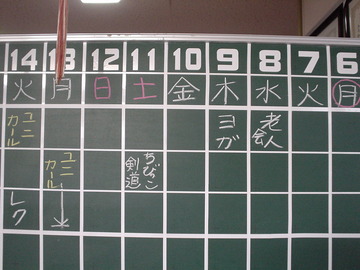 14 13 12 11 10 9 8 7 6
火 月 日 土 金 木 水 火 月
ユニカール
ヨガ
老人会
ユニカール
ちびっこ剣道
レク